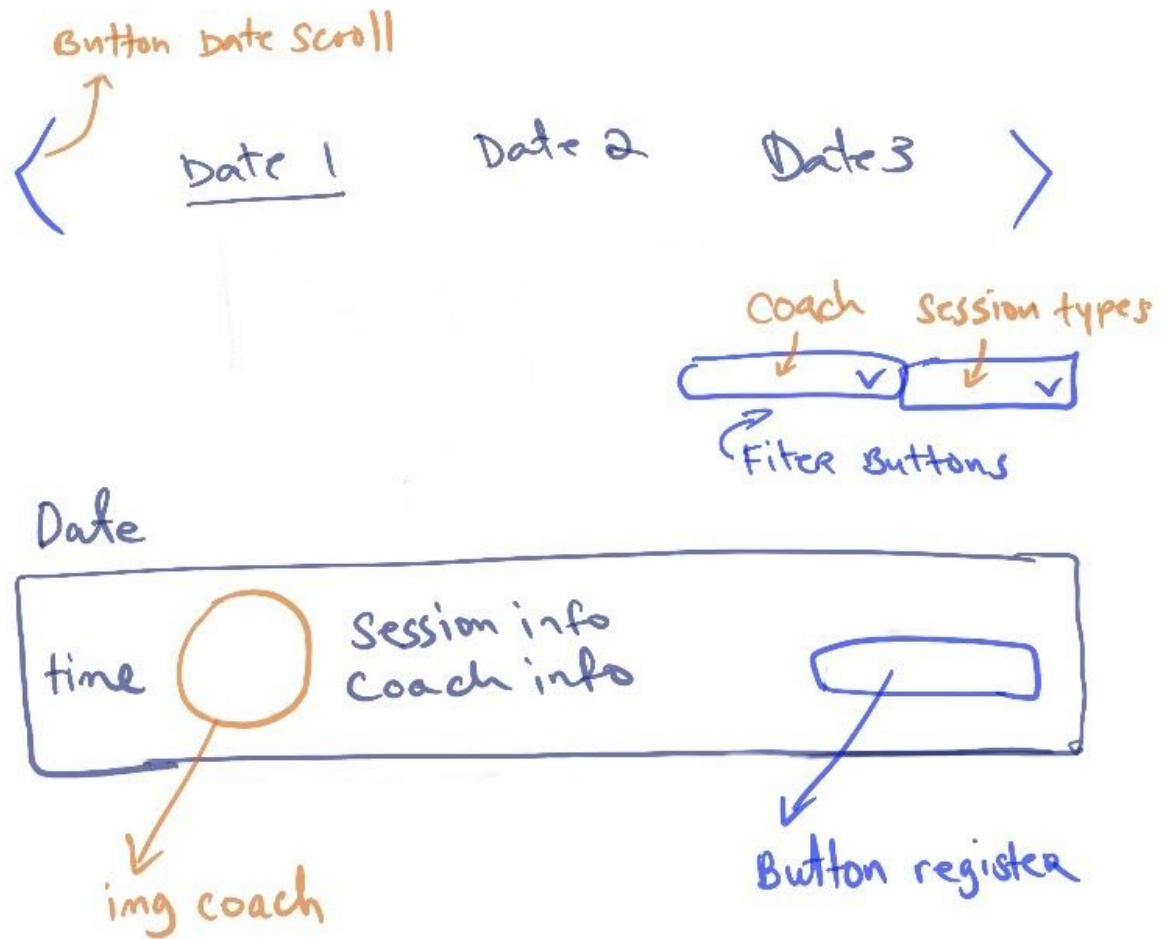 Button Date Scroll
Date 1 Date 2 Date 3
Coach Session types
Fiter Buttons
Date
time
Session info
Coach info
Button register
img coach